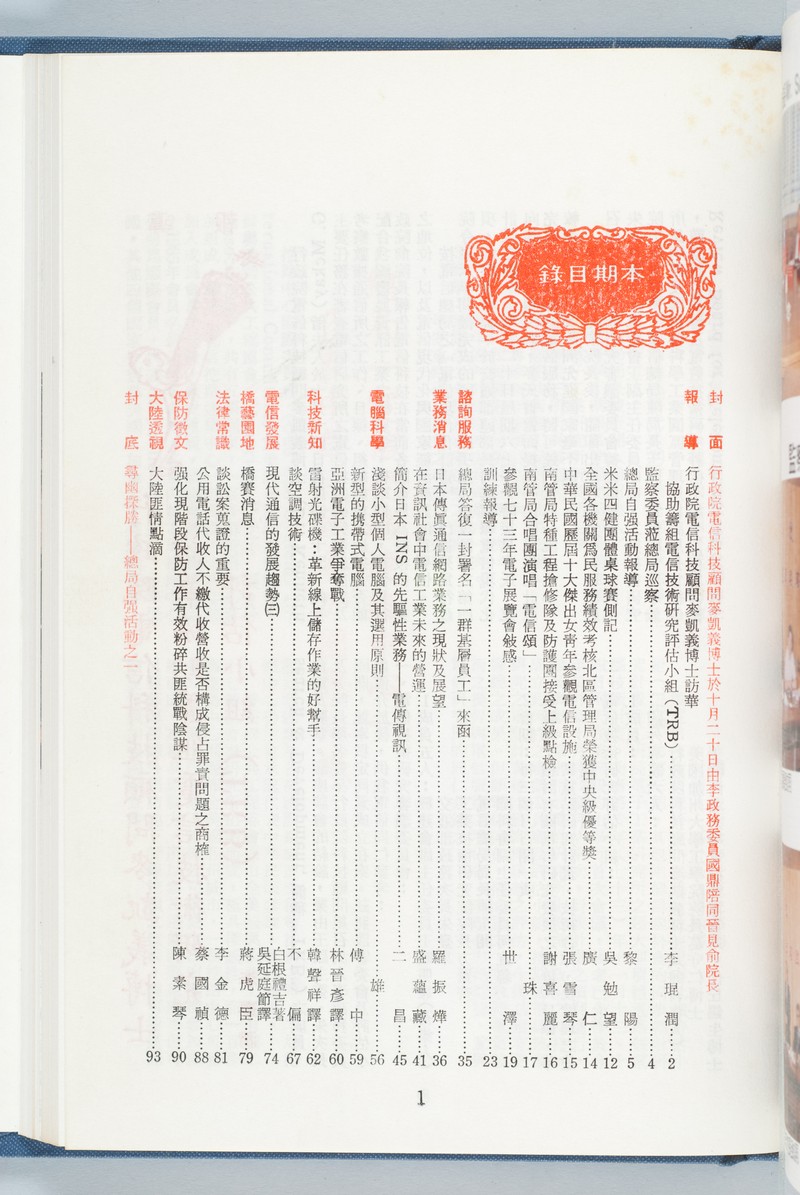 本期目錄
封面 行政院電信科技顧問麥凱義博士於十月二十日由李政務委員國鼎陪同晉見俞院長
報導 行政院電信科技顧問麥凱義博士訪華
協助籌組電信技術研究評估小組（TRB）……李琨潤…2
監察委員蒞總局巡察……4
總局自强活動報導……黎陽…5
米米四健團體桌球賽側記……吳勉望…12
全國各機關為民服務績效考核北區管理局榮獲中央級優等獎……廣仁…14
中華民國歷屆十大傑出女青年參觀電信設施……張雪琴…15
南管局特種工程搶修隊及防護團接受上級點檢……謝喜麗…16
南管局合唱團演唱「電信頌」……珠…17
參觀七十三年電子展覽會敍感……世澤…19
訓練報導……23
諮詢服務 總局答復一封署名「一群基層員工」來函……35
業務消息 日本傳眞通信網路業務之現狀及展望……羅振燁…36
在資訊社會中電信工業未來的營運……盛蘊藏…41
簡介日本 INS 的先驅性業務——電傳視訊……二昌…45
電腦科學 淺談小型個人電腦及其選用原則……雄…56
新型的携帶式電腦……傅中…59
亞洲電子工業爭奪戰……林晉彥譯…60
科技新知 雷射光碟機：革新線上儲存作業的好幫手……韓聲祥譯…62
談空調技術……不偏…67
電信發展 現代通信的發展趨勢㈢……白根禮吉著 吳延庭節譯…74
橋藝園地 橋賽消息……蔣虎臣…79
法律常識 談訟案蒐證的重要……李金德…81
公用電話代收人不繳代收營收是否構成侵占罪責問題之商榷……蔡國禎…88
保防徵文 强化現階段保防工作有效粉碎共匪統戰陰謀……陳素琴…90
大陸透視 大陸匪情點滴……93
封底 尋幽探勝——總局自强活動之一
1